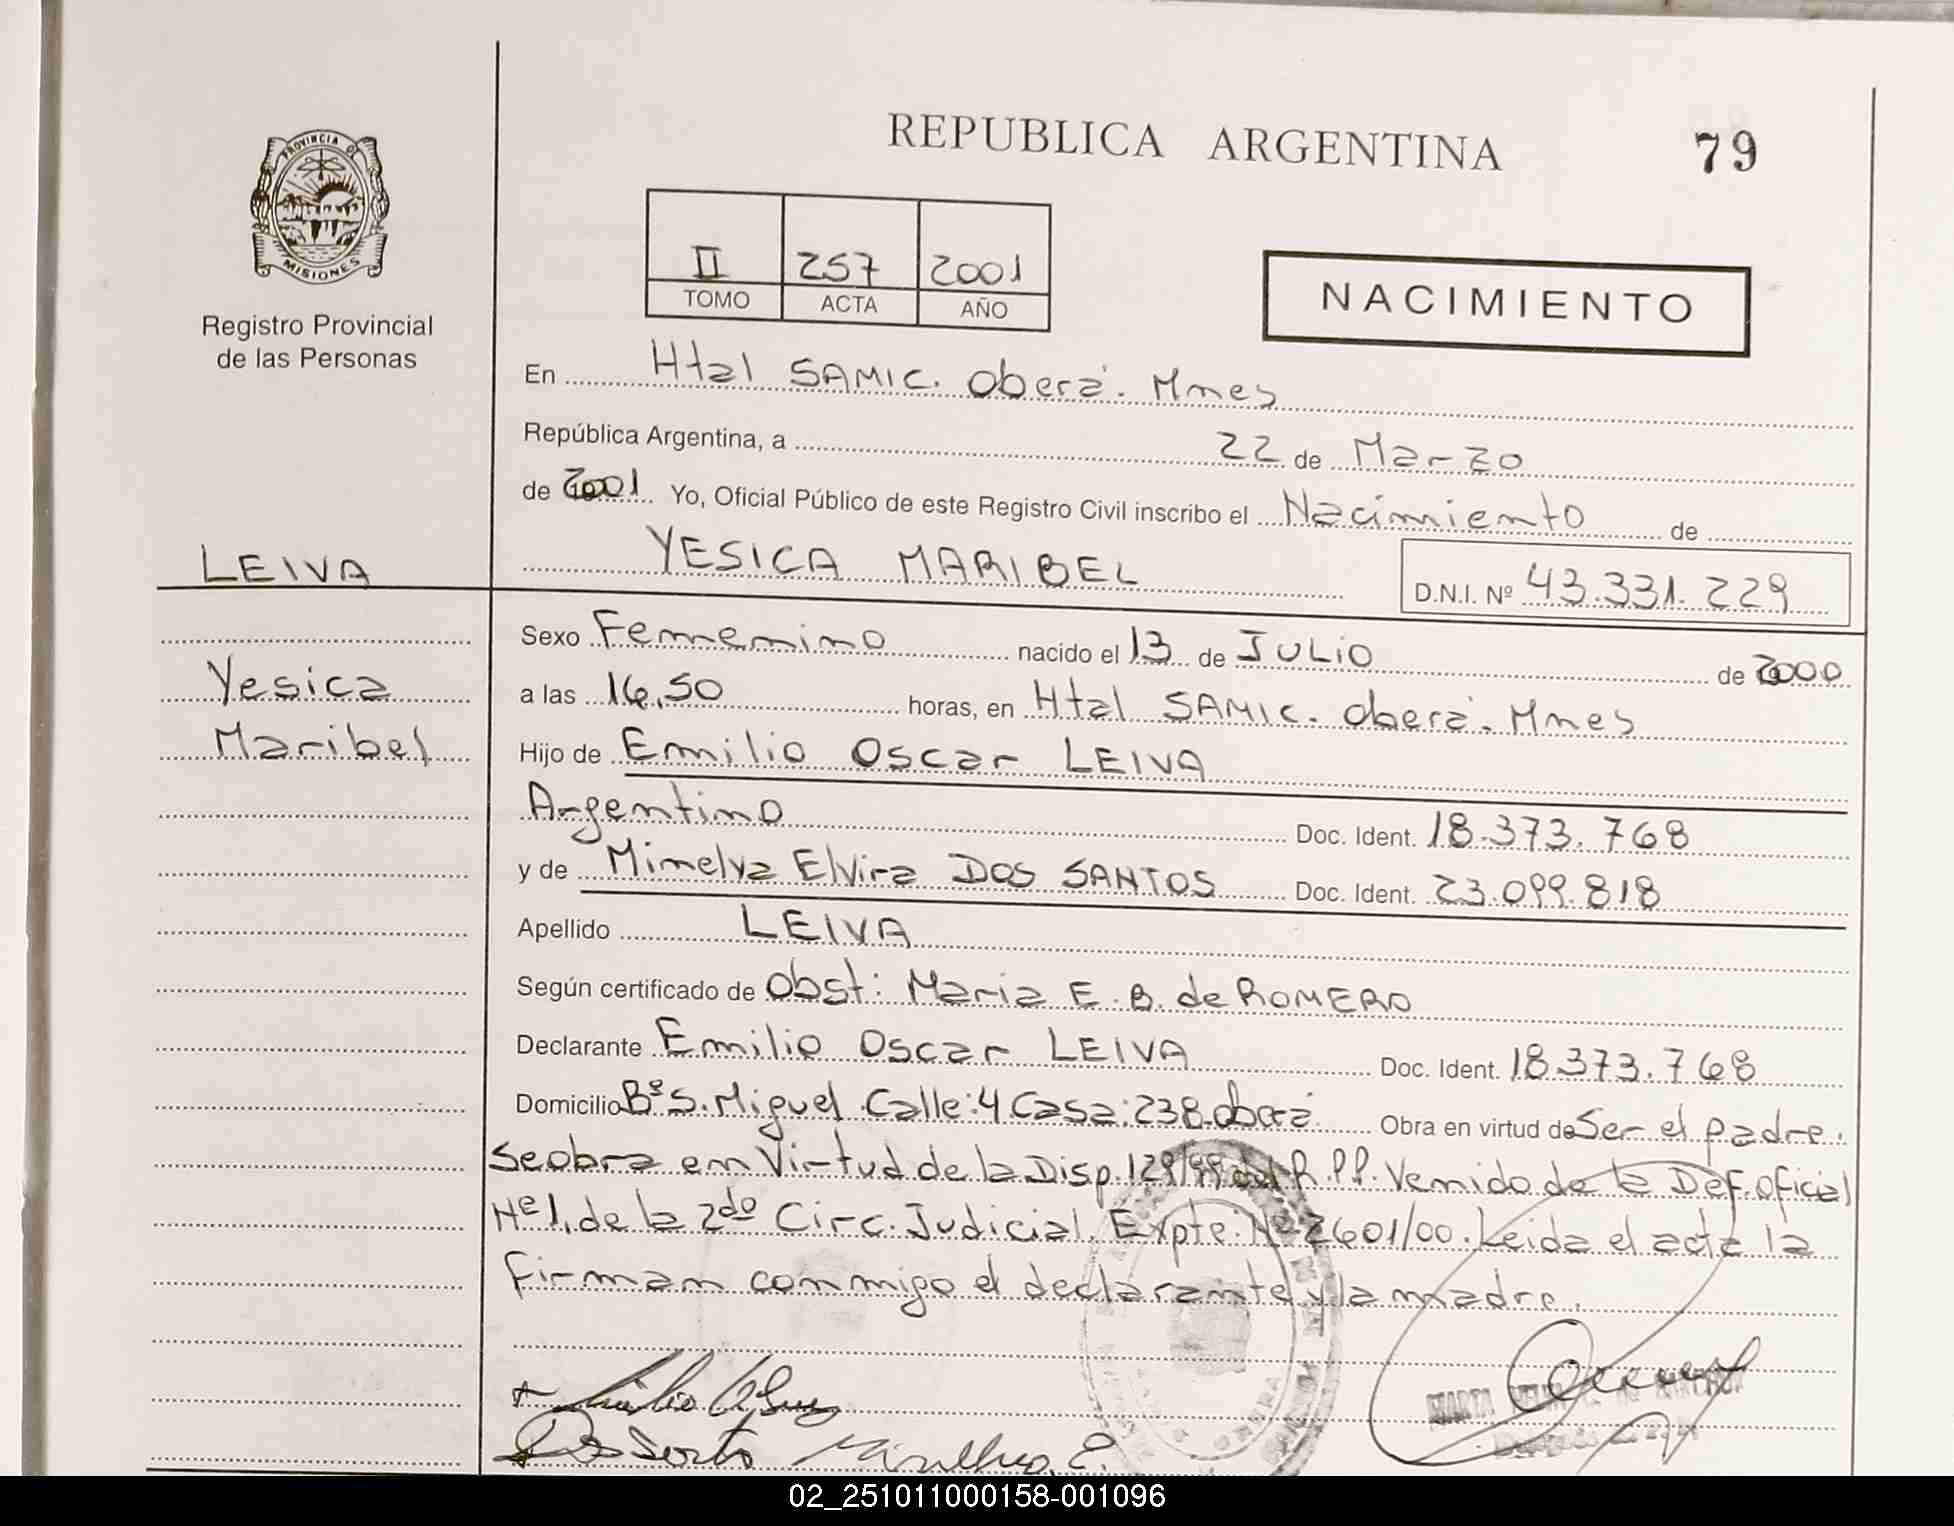 REPUBLICA ARGENTINA
79
PROVINCIA DE
MISIONES
Registro Provincial
de las Personas
II 257 2001
TOMO ACTA AÑO
NACIMIENTO
En Htal SAMIC. Oberá. Mnes
República Argentina, a 22 de Marzo
de 2001 Yo, Oficial Público de este Registro Civil inscribo el Nacimiento de
LEIVA
YESICA MARIBEL
D.N.I. Nº 43.331.229
Sexo Femenino nacido el 13 de JULIO de 2000
Yesica
a las 16,50 horas, en Htal SAMIC. Oberá. Mnes
Maribel
Hijo de Emilio Oscar LEIVA
Argentino Doc. Ident. 18.373.768
y de Minelva Elvira DOS SANTOS Doc. Ident. 23.099.818
Apellido LEIVA
Según certificado de Obst: Maria E. B. de ROMERO
Declarante Emilio Oscar LEIVA Doc. Ident. 18.373.768
Domicilio Bº S. Miguel Calle: 4 Casa: 238. Oberá Obra en virtud de Ser el padre.
Se obra en Virtud de la Disp. 129/99 del R.P.P. Venido de la Def. Oficial
Nº 1, de la 2do Circ. Judicial. Expte. Nº 2601/00. Leida el acta la
firman conmigo el declarante y la madre.
MARTA
02_251011000158-001096